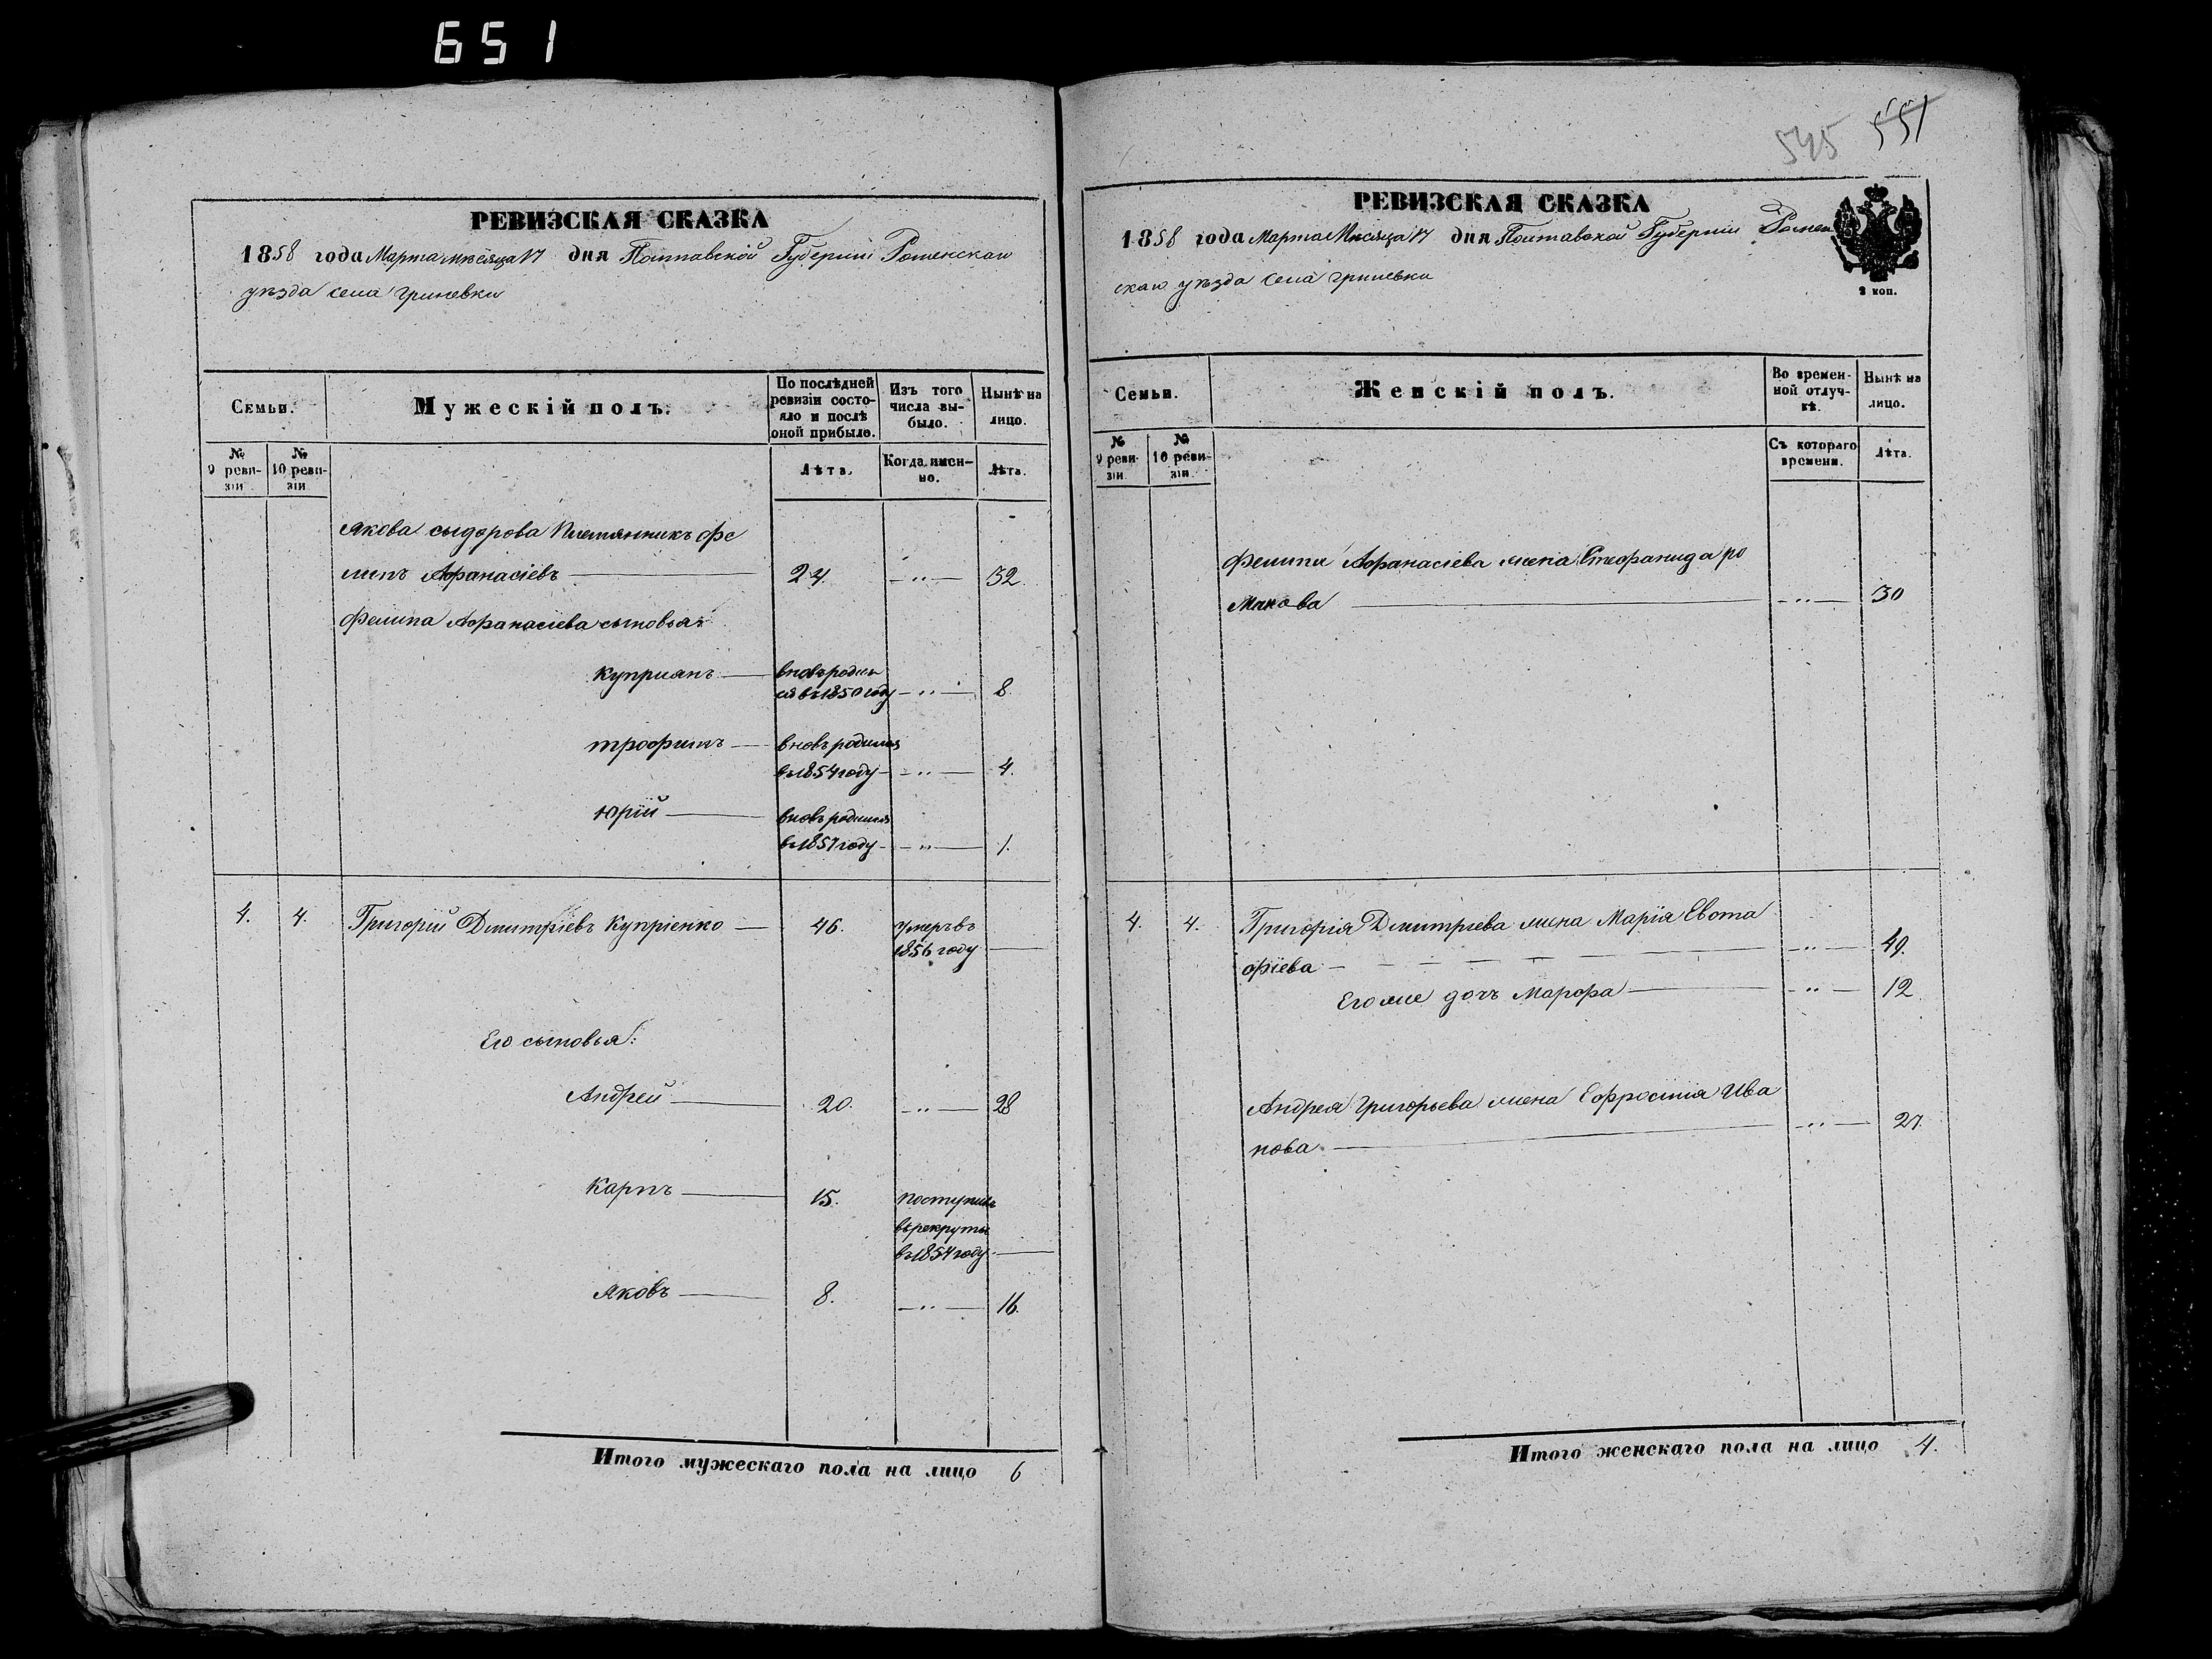 651
РЕВИЗСКАЯ СКАЗКА
1858 года Марта месяца 17 дня Полтавской Губернии Роменскаго
уезда села Гриневки
Семьи.
Мужескій полъ.
По послѣдней ревизіи состояло и послѣ оной прибыло.
Изъ того числа выбыло.
Нынѣ на лицо.
№ 9 ревизіи
№ 10 ревизіи
Лѣта.
Когда именно.
Лѣта.
Якова Сыдорова племянникъ Фе
липъ Афанасіевъ 24. 32.
Фелипа Афанасіева сыновья:
Куприянъ вновь родил
ся въ 1850 году 8.
Трофимъ вновь родился
въ 1854 году 4.
Юрій вновь родился
въ 1857 году 1.
4. 4. Григорій Дмитріевъ Купріенко 46. умеръ въ
1856 году
Его сыновья:
Андрей 20. 28
Карпъ 15. поступилъ
въ рекруты
въ 1854 году
Яковъ 8. 16.
Итого мужескаго пола на лицо 6
545 551
РЕВИЗСКАЯ СКАЗКА
1858 года Марта Месяца 17 дня Полтавской Губернии Ромен
скаго уезда села Гриневки
3 коп.
Семьи.
Женскій полъ.
Во временной отлучкѣ.
Нынѣ на лицо.
№ 9 ревизіи
№ 10 ревизіи
Съ котораго времени.
Лѣта.
Фелипа Афанасіева жена Стефанида Ро
манова 30
4. 4. Григорія Дмитріева жена Марія Евста
фіева 49.
Его же дочь Марфа 12.
Андрея Григорьева жена Ефросинія Ива
нова 27.
Итого женскаго пола на лицо 4.